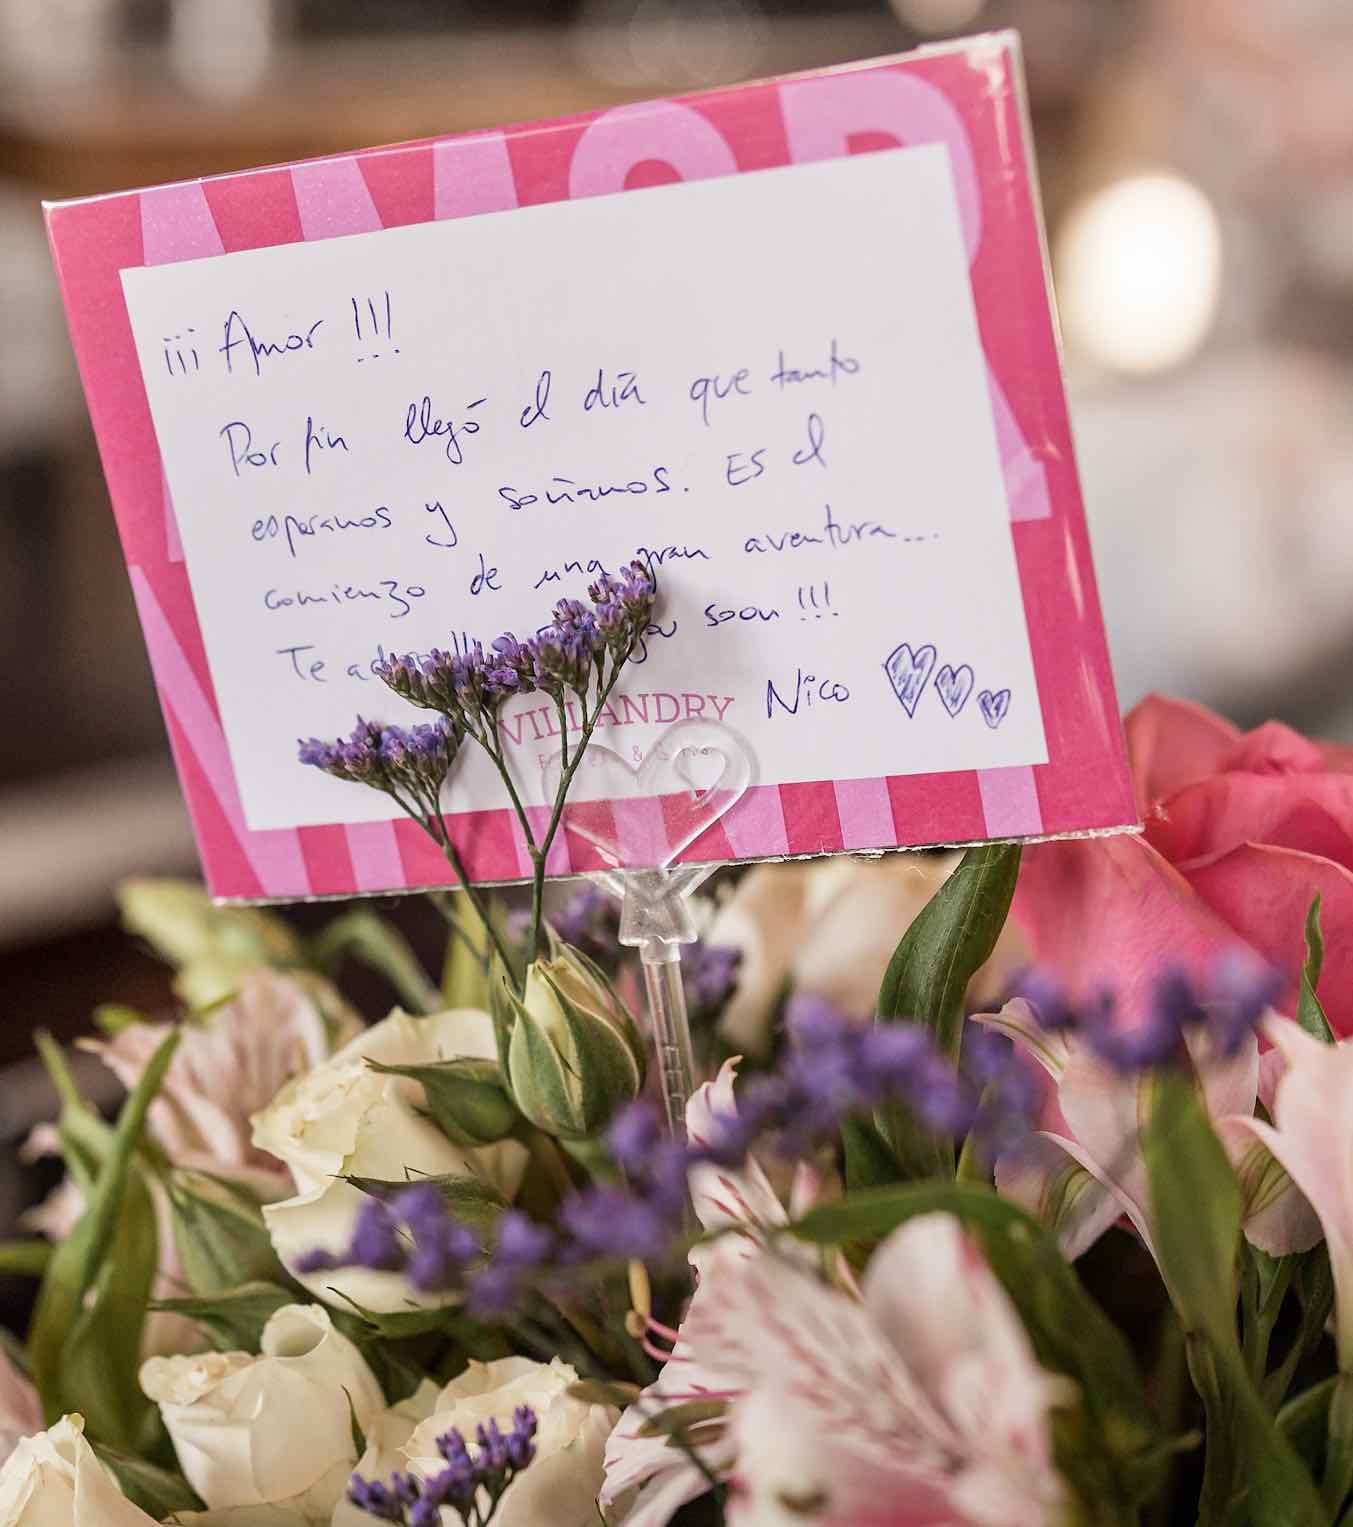 AMOR
¡¡¡ Amor !!!
Por fin llegó el día que tanto
esperamos y soñamos. Es el
comienzo de una gran aventura...
Te adoro !!! you soon !!!
Nico
VILLANDRY